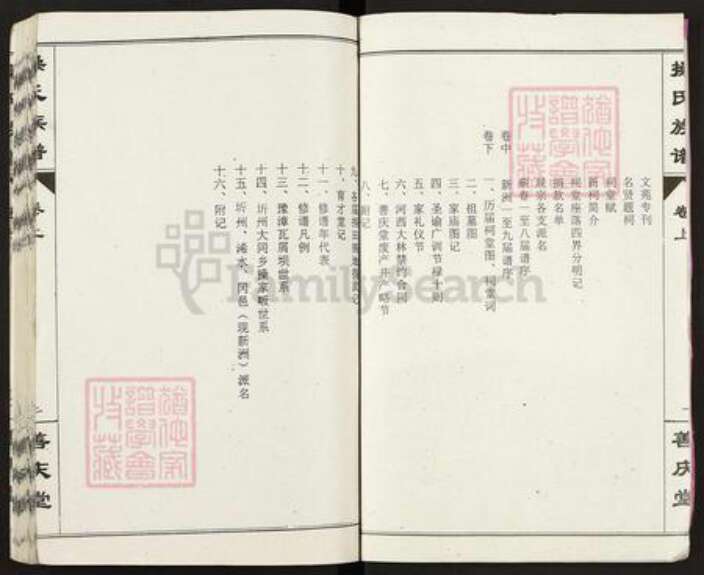 操氏族谱
卷上
一
善庆堂
文苑专刊
名贤题柯
祠堂赋
新祠简介
祠堂座落四界分明记
捐款名单
展宗各支派名
蕲春一至八届谱序
新洲一至九届谱序
卷中
卷下
一、历届祠堂图、祠堂词
二、祖墓图
三、家庙图记
四、圣谕广训节禄十则
五、家礼仪节
六、河西大林禁约合同
七、善庆堂废产并产略节
八、附记
十、育才堂记
十一、修谱年代表
十二、修谱凡例
十三、豫漳瓦屑坝世系
十四、圻州大同乡操家畈世系
十五、圻州、浠水、冈邑（现新洲）派名
十六、附记
操氏族谱
卷上
二
善庆堂
FamilySearch